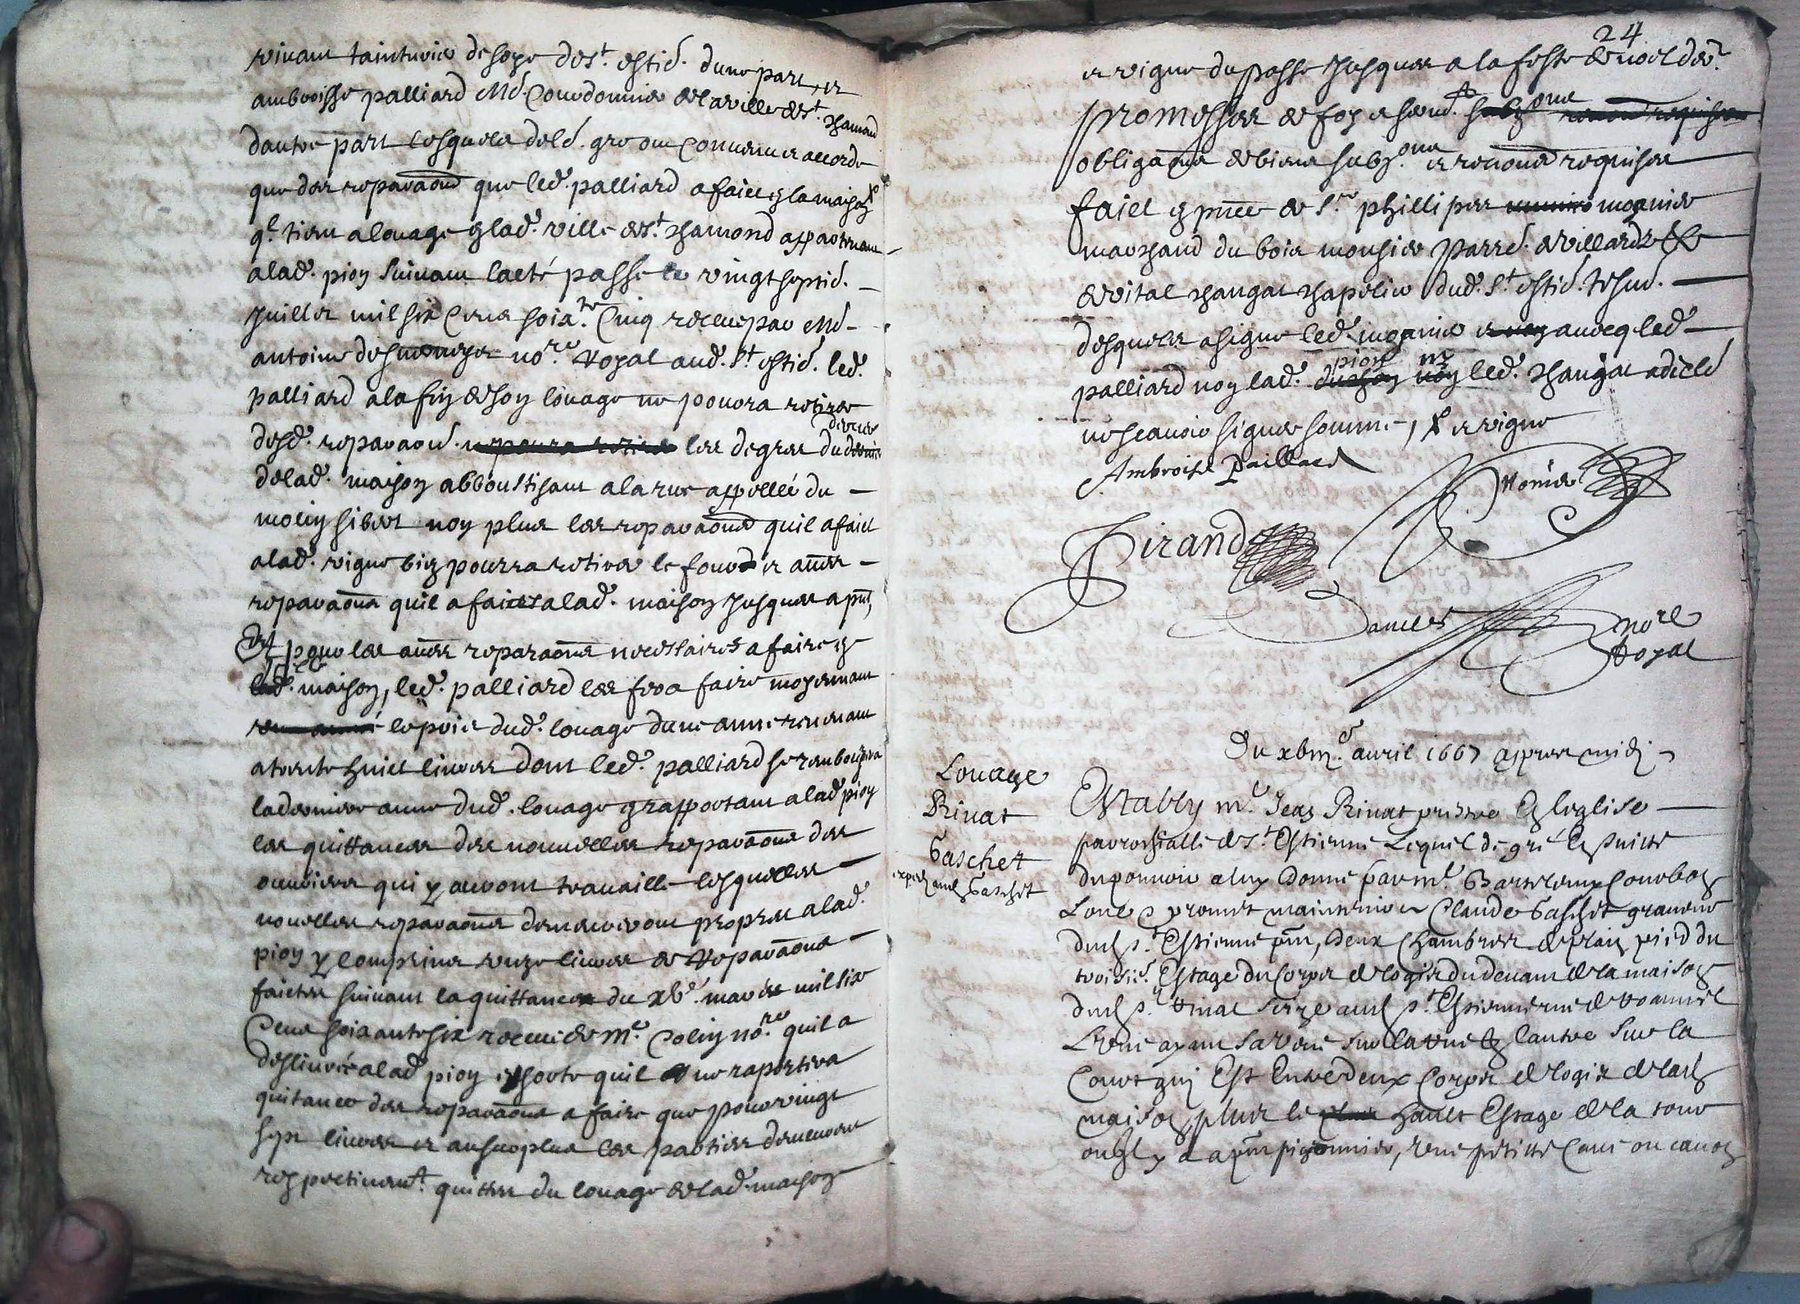 vivant tainturier de soye de st. estie. d'une part, et
ambroisse palliard Md. Courdonnier de la ville de st. chamond
d'autre part lesquels de led. gre ont convenu et accorde
que des reparaôns que led. palliard a faict en la maison
ql. tient a louage en lad. ville de st. chamond appartenant
a lad. pion suivant l'acté passé le vingt septie.
Juillet mil six Cens soixte. Cinq receu par Me
antoine no.re Royal aud. st. estie. led.
palliard a la fin de son louage ne pourra retirer
desd. reparaôns les degres du devant
de lad. maison abboustissant a la rue appellée du
molin sibert non plus les reparaôns qu'il a faict
a lad. vigne bien pourra retirer le four et aues
reparaôns qu'il a faictes a lad. maison Jusques a pnt,
Et pour les aues reparaôns necessaires a faire en
maison, led. palliard les fera faire moyennant
le prix dud. louage d'une annee revenant
a trente huict livres dont led. palliard se remboursera
la derniere annee dud. louage en rapportant a lad. pion
les quittances des nouvelles reparaôns des
ouvriers qui y auront travaille lesquelles
nouvelles reparaôns demeureront propres a lad.
pion y comprins unze livres de reparaôns
faictes suivant la quittance du xbe. mars mil six
Cens soixante six receue de Me. Colin no.re qu'il a
deslivrée a lad. pion en sorte qu'il ne raportera
quitance des reparaôns a faire que pour vingt
sept livres et au surplus les parties demeurent
respectivemt. quittes du louage de lad. maison
24
et vigne du passe Jusques a la feste de noel der.
promesses de foy et sermt.
obligaôns de biens subz.ons et renonôns requises
faict en pnce de sr. phillipes mognier
marchand du bois monsier parre. de villards
et vital changat chapelier dud. st. estie. tesms.
desquels a signe led. mognier avecq led.
palliard non lad. pion ny led. changat
ne scavoir signer somme, X et vigne
Ambroise Paillard
Monier
Girand
nore
Royal
Du xbme. avril 1667 apres midi
Louage
Rivat
Gaschet
exped. aud. Gaschet
Estably Me. Jean Rivat prestre En l'eglise
parrochialle de st. Estienne Lequel de gré En suitte
du pouvoir a luy donné par Me. Barthelemy Courbon
Loue & promet maintenir a Claude Gaschet graveur
dud. st. Estienne pnt, deux chambres de plain pied du
troisie. Estage du corps de logis du devant de la maison
dud. sr. Rivat size aud. st. Estienne rue de Roannel
L'une ayant sa vüe sur la rue & l'autre sur la
Court qui Est Entre deux corps de logis de lad.
maison, plus le hault Estage de la tour
ou Il y a a pnt pigeonnier, une petitte Cave ou cavon